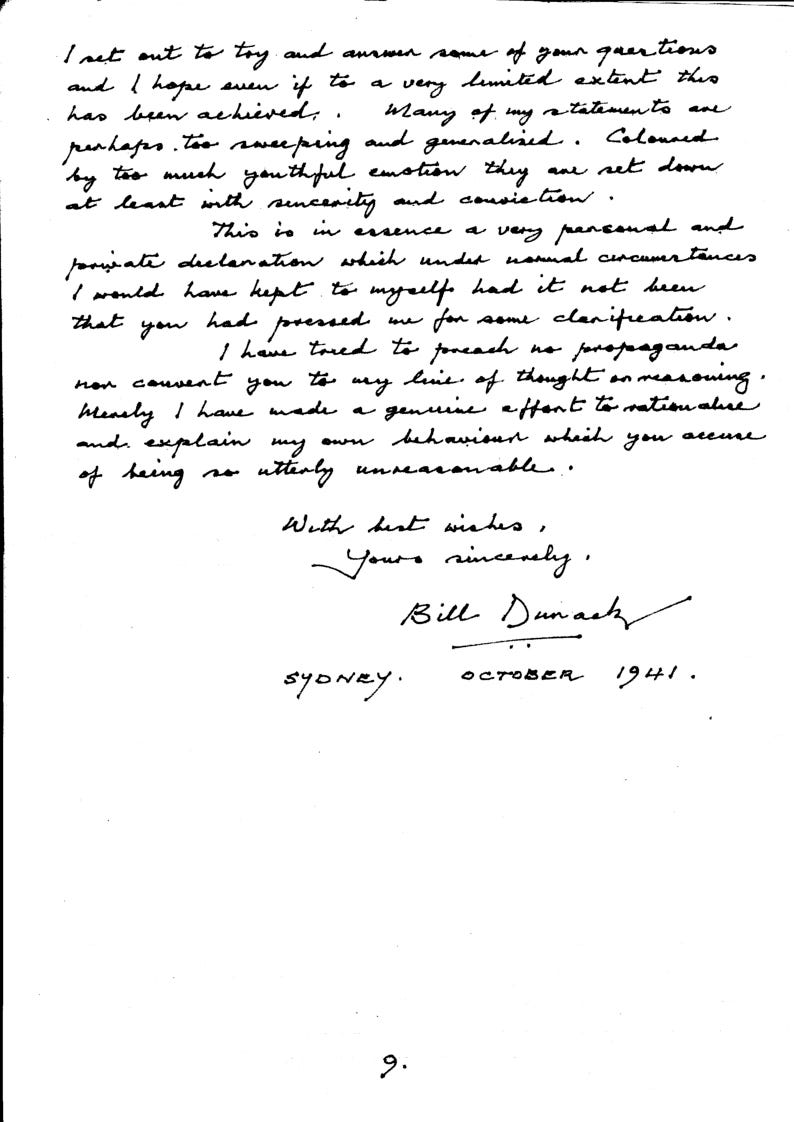 I set out to try and answer some of your questions
and I hope even if to a very limited extent this
has been achieved. Many of my statements are
perhaps too sweeping and generalised. Coloured
by too much youthful emotion they are set down
at least with sincerity and conviction.
This is in essence a very personal and
private declaration which under normal circumstances
I would have kept to myself had it not been
that you had pressed me for some clarification.
I have tried to preach no propaganda
nor convert you to my line of thought or reasoning.
Merely I have made a genuine effort to rationalise
and explain my own behaviour which you accuse
of being so utterly unreasonable.
With best wishes,
Yours sincerely,
Bill Dunack
SYDNEY. OCTOBER 1941.
9.